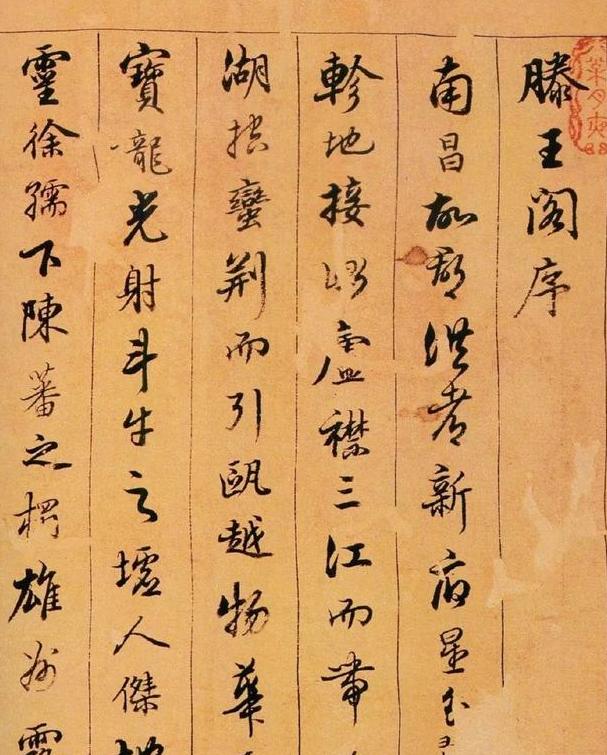 滕王閣序
南昌故郡洪都新府星分
軫地接衡廬襟三江而帶
湖控蠻荊而引甌越物華
寶龍光射斗牛之墟人傑地
靈徐孺下陳蕃之榻雄州霧